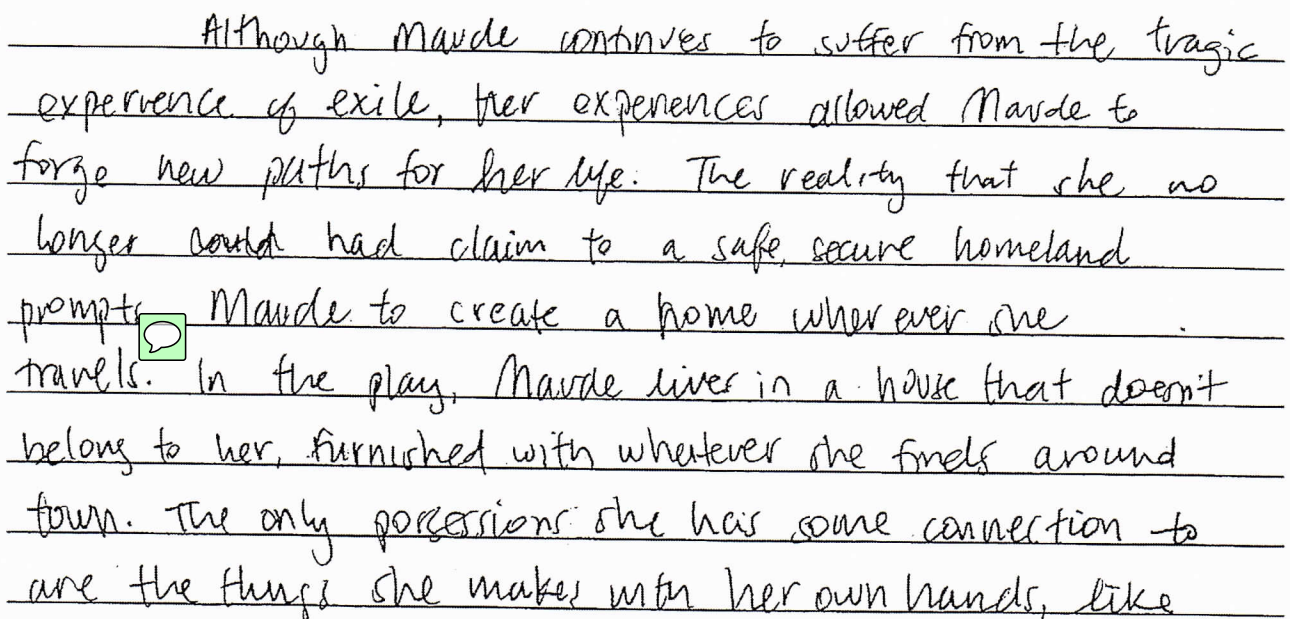 Although Maude continues to suffer from the tragic
experience of exile, her experiences allowed Maude to
forge new paths for her life. The reality that she no
longer could had claim to a safe, secure homeland
prompts Maude to create a home wherever she
travels. In the play, Maude lives in a house that doesn't
belong to her, furnished with whatever she finds around
town. The only possessions she has some connection to
are the things she makes with her own hands, like